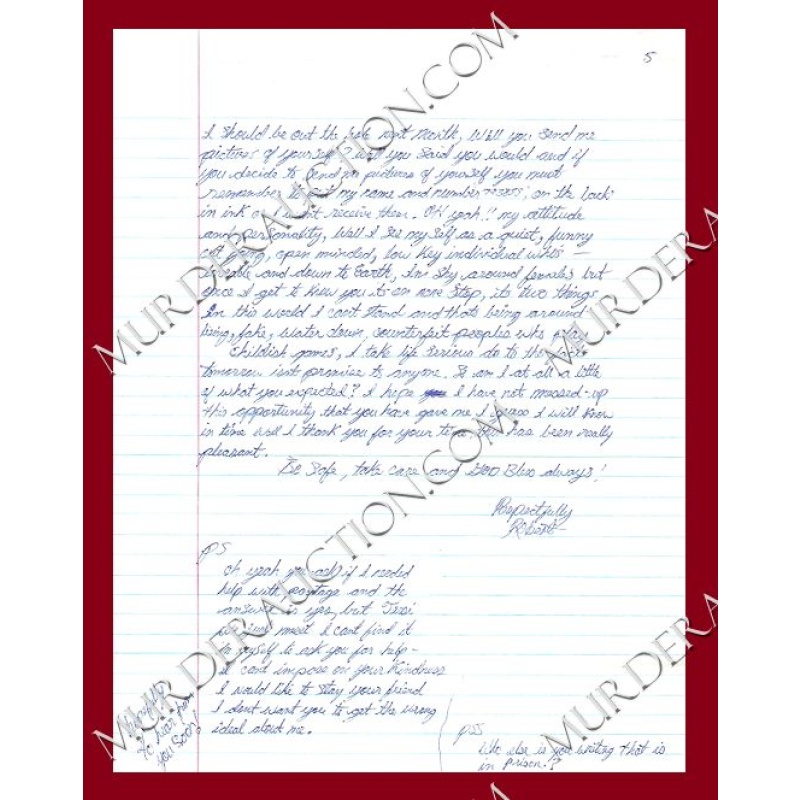 5
I Should be out the hole next Month, Will you Send me
pictures of yourself? Well you Said you would and if
you decide to Send me pictures of yourself you must
remember to put my name and number on the back
in ink or I wont receive them. OH yeah!! my attitude
and personality, Well I See my Self as a quiet, funny
out going, open minded, low Key individual who's
and down to Earth, I'm Shy around females but
once I get to Know you its on none Stop, its two things
In this world I cant Stand and thats being around
being, fake, Water down, counterfeit peoples who play
Childish games, I take life Serious do to the fact
tomorrow isnt promise to anyone. So am I at all a little
of what you expected? I hope I have not messed-up
this opportunity that you have gave me I guess I will Know
in time well I thank you for your time, this has been really
pleasant.
Be Safe, take care and GOD Bless always!
Respectfully
PS
Oh yeah you ask if I needed
help with postage and the
answer is yes, but
we just meet I cant find it
in myself to ask you for help -
I cant impose on your Kindness
I would like to Stay your friend
I dont want you to get the wrong
ideal about me.
Hopefully
to hear from
you Soon
PSS
Who else is you writing that is
in prison?
MURDERAUCTION.COM
MURDERAUCTION.COM
MURDERA
MURDERA